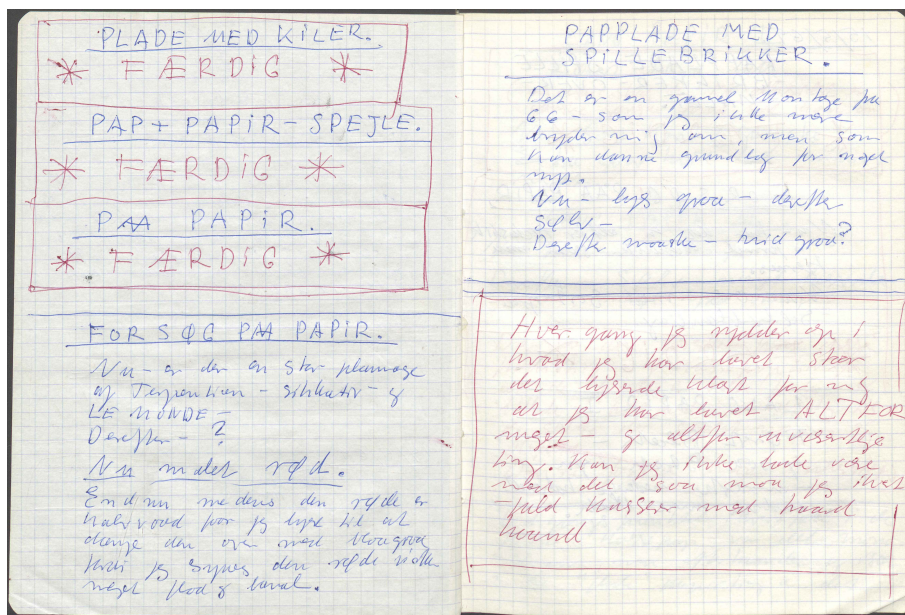 PLADE MED KILER.
* FÆRDIG *
PAP + PAPIR - SPEJLE.
* FÆRDIG *
PAA PAPIR.
* FÆRDIG *
FORSØG PAA PAPIR.
Nu - er der en stor plamage
af Terpentin - sikkativ - og
LE MONDE -
Derefter - ?
Nu malet rød.
Endnu medens den røde er
halvvaad faar jeg lyst til at
dænge den over med blaagraa
fordi jeg synes den røde
noget flad og banal.
PAPPLADE MED
SPILLEBRIKKER.
Det er en gammel Montage fra
66 - som jeg ikke mere
bryder mig om, men som
kan danne grundlag for noget
nyt.
Nu - lys graa - derefter
Sølv -
Derefter maaske - hvid graa?
Hver gang jeg rydder op i
hvad jeg har lavet staar
det lysende klart for mig
at jeg har lavet ALTFOR
meget - og altfor uvæsentlige
ting. Kan jeg ikke lade være
med det saa maa jeg
kassere med haard
haand